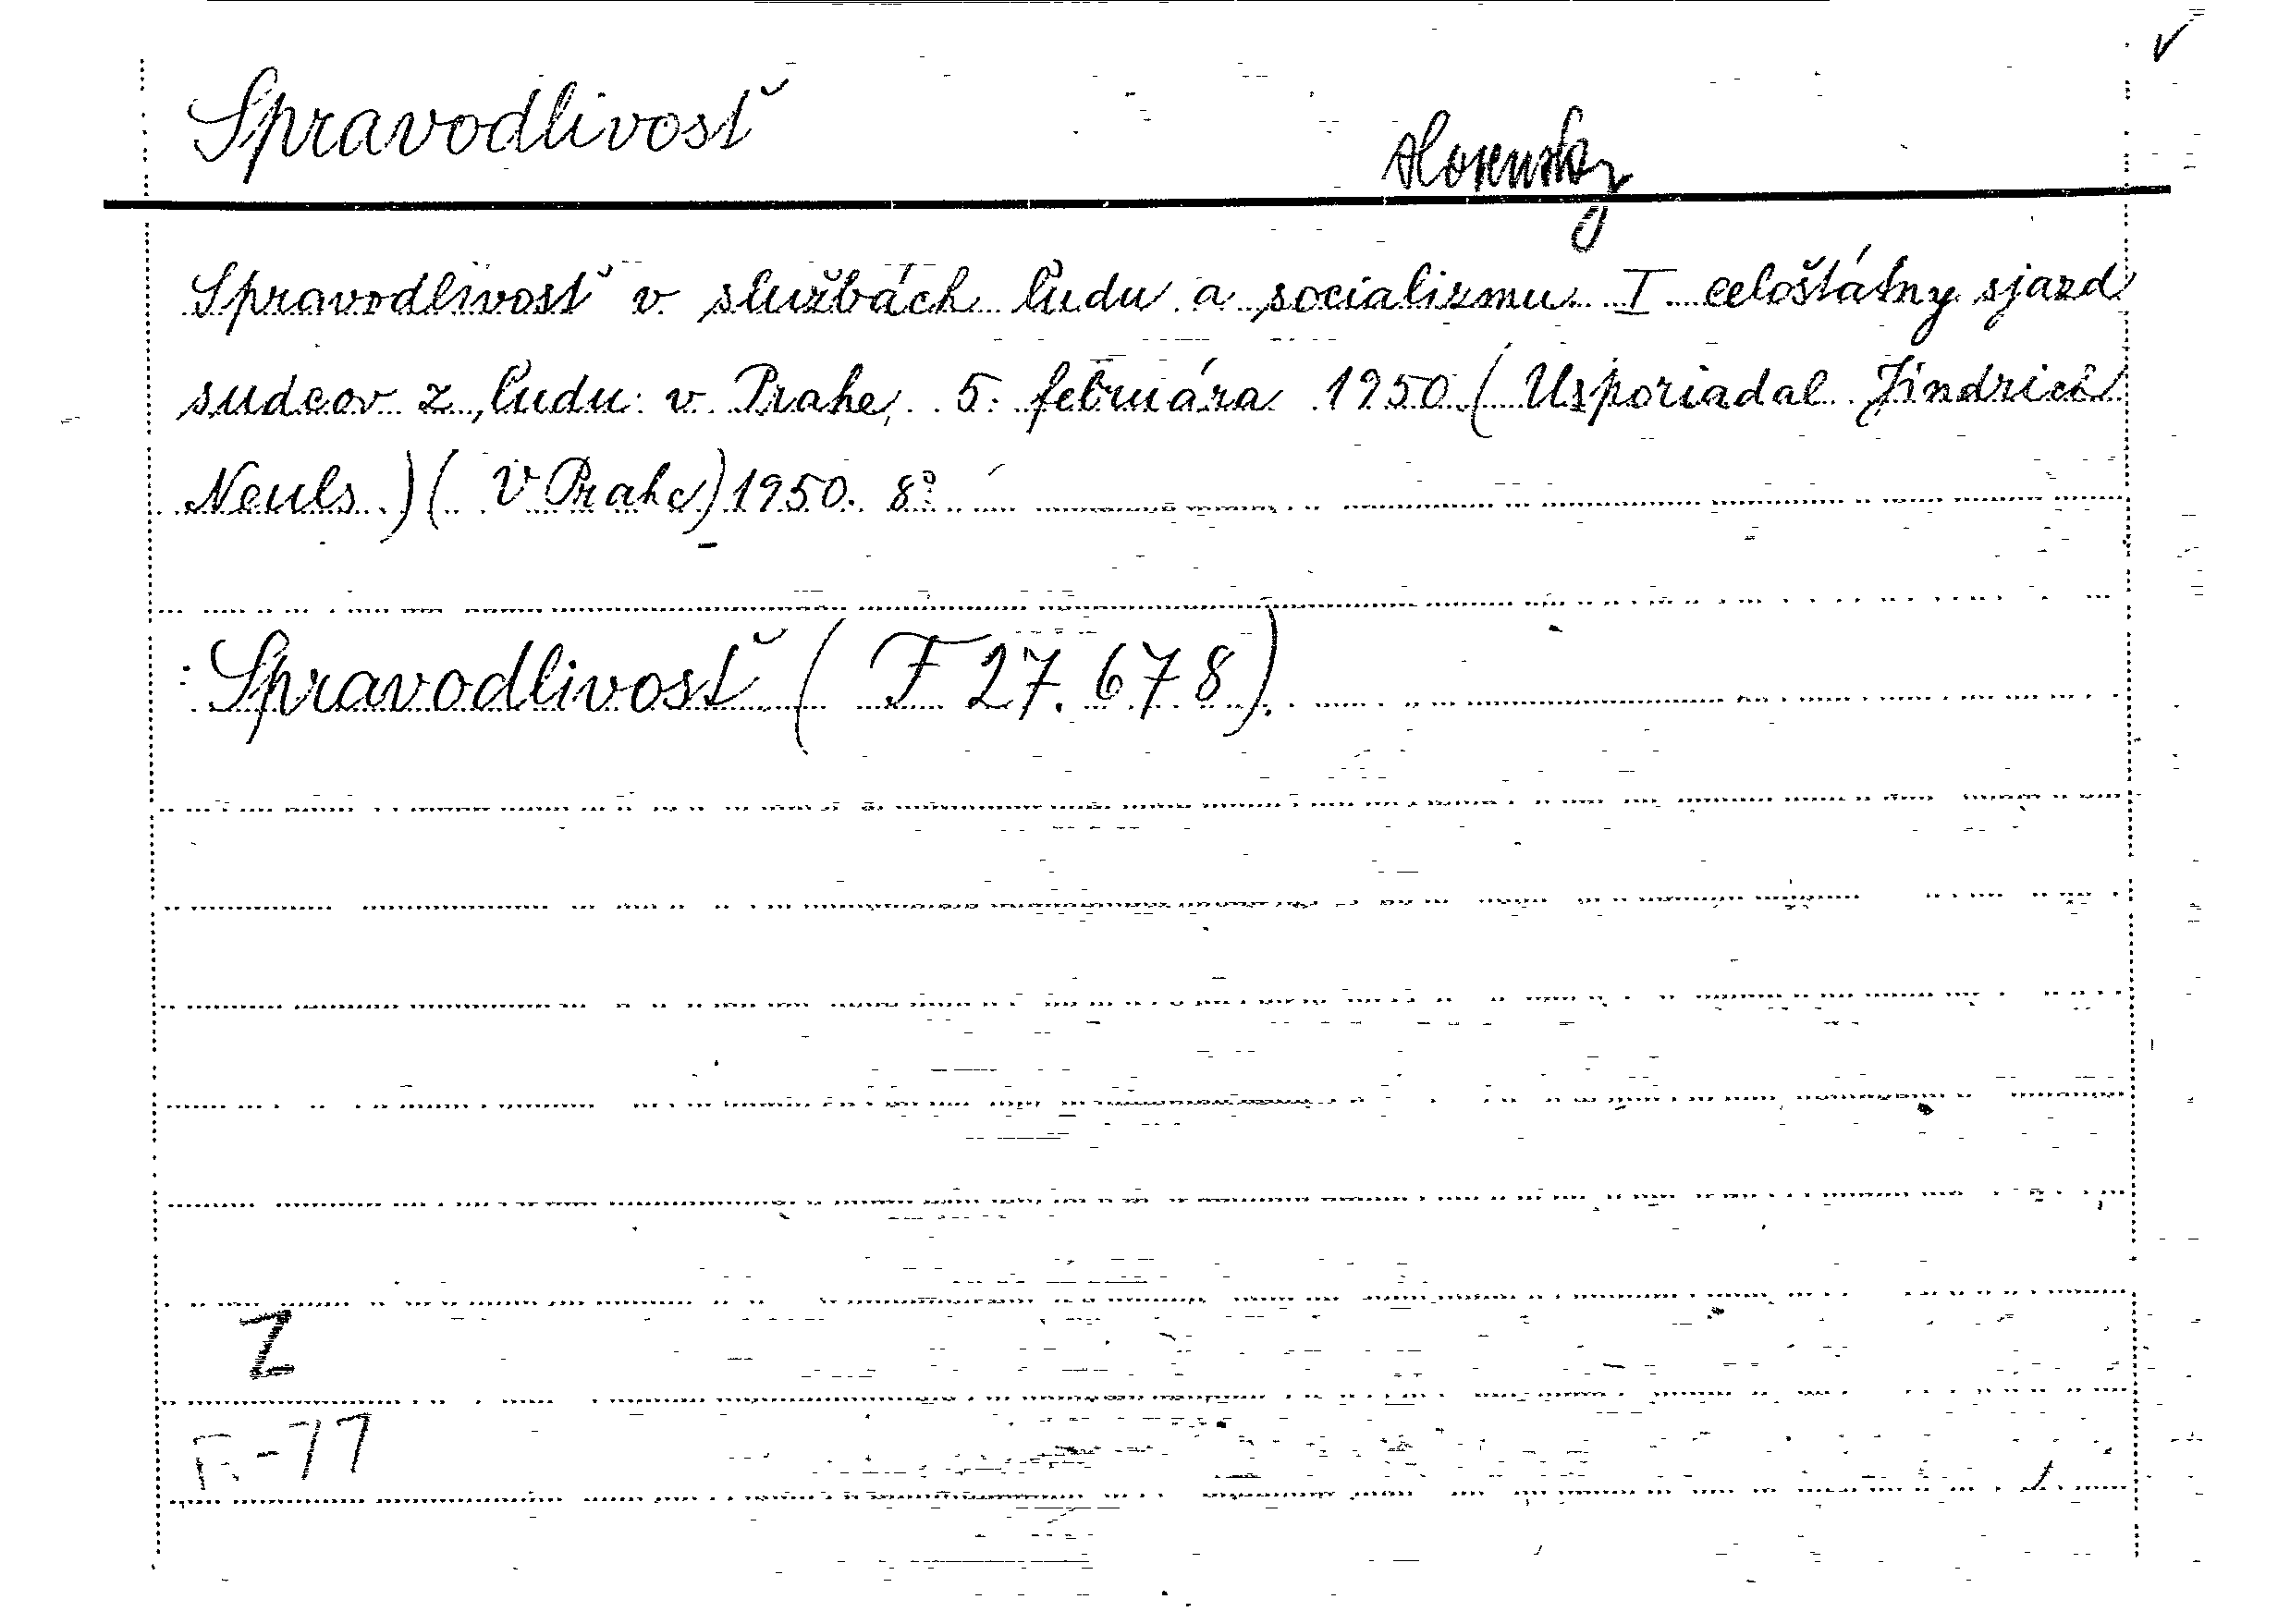 Spravodlivosť
slovensky
Spravodlivosť v službách ľudu a socializmu I celoštátny sjazd
sudcov z ľudu v Prahe, 5. februára 1950 ( Usporiadal Jindrich
Neuls.) ( V Prahe) 1950. 8°
: Spravodlivosť ( F 27.678).
Z
F-77